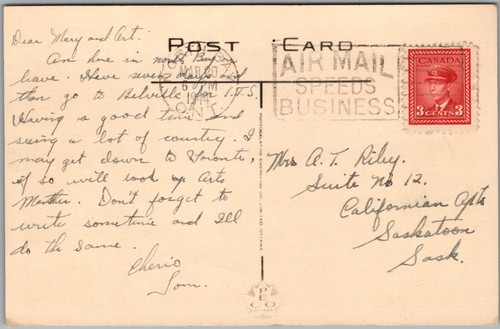 Dear Mary and Art.
POST CARD
Am here in north Bay on
leave. Have seven days and
then go to Belville for I.T.S.
Having a good time and
seeing a lot of country. I
may get down to Toronto,
if so will look up Arts
Mother. Don't forget to
write sometime and Ill
do the same.
Cherio
Tom.
MAR 20
PM
ONT.
AIR MAIL
SPEEDS
BUSINESS
CANADA
3 CENTS 3
Mrs A. T. Riley.
Suite No 12.
Californian Apts
Saskatoon
Sask.
PECO